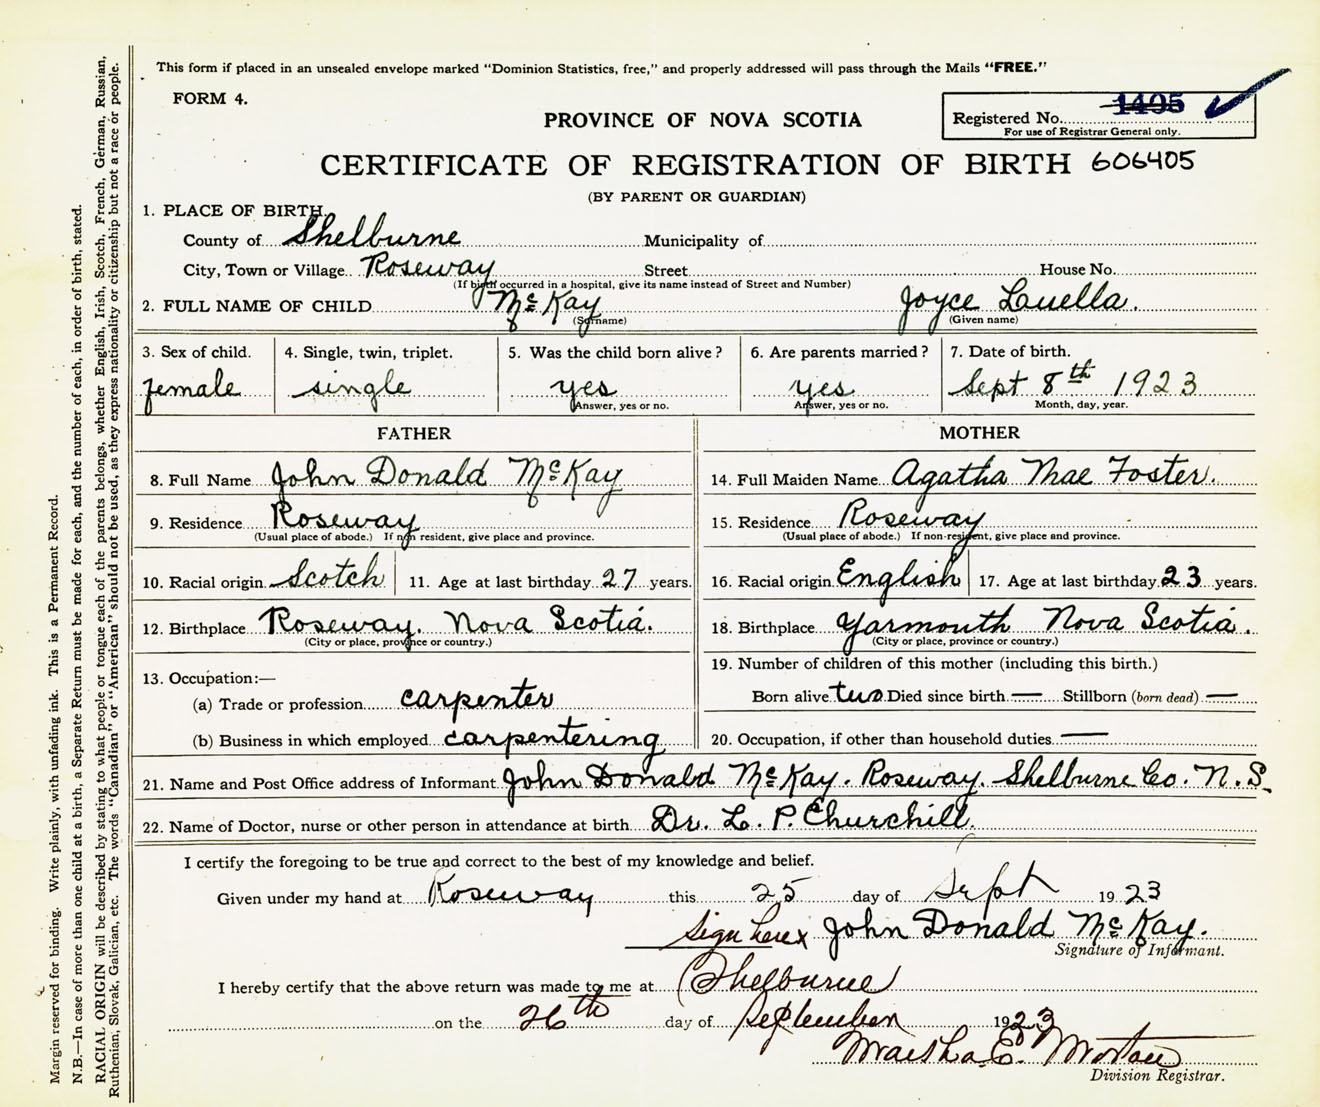 This form if placed in an unsealed envelope marked "Dominion Statistics, free," and properly addressed will pass through the Mails "FREE."
FORM 4.
Registered No. 1405
For use of Registrar General only.
PROVINCE OF NOVA SCOTIA
CERTIFICATE OF REGISTRATION OF BIRTH 606405
(BY PARENT OR GUARDIAN)
1. PLACE OF BIRTH
County of Shelburne Municipality of
City, Town or Village Roseway Street House No.
(If birth occurred in a hospital, give its name instead of Street and Number)
2. FULL NAME OF CHILD McKay Joyce Luella.
(Surname) (Given name)
3. Sex of child. 4. Single, twin, triplet. 5. Was the child born alive? 6. Are parents married? 7. Date of birth.
female single yes yes Sept 8th 1923
Answer, yes or no. Answer, yes or no. Month, day, year.
FATHER
8. Full Name John Donald McKay
9. Residence Roseway
(Usual place of abode.) If non resident, give place and province.
10. Racial origin Scotch 11. Age at last birthday 27 years.
12. Birthplace Roseway. Nova Scotia.
(City or place, province or country.)
13. Occupation:—
(a) Trade or profession carpenter
(b) Business in which employed carpentering
MOTHER
14. Full Maiden Name Agatha Mae Foster.
15. Residence Roseway
(Usual place of abode.) If non-resident, give place and province.
16. Racial origin English 17. Age at last birthday 23 years.
18. Birthplace Yarmouth Nova Scotia.
(City or place, province or country.)
19. Number of children of this mother (including this birth.)
Born alive two Died since birth — Stillborn (born dead) —
20. Occupation, if other than household duties —
21. Name and Post Office address of Informant John Donald McKay. Roseway. Shelburne Co. N.S.
22. Name of Doctor, nurse or other person in attendance at birth Dr. L. P. Churchill.
I certify the foregoing to be true and correct to the best of my knowledge and belief.
Given under my hand at Roseway this 25 day of Sept 1923
Sign here x John Donald McKay.
Signature of Informant.
I hereby certify that the above return was made to me at Shelburne
on the 26th day of September 1923
E.
Division Registrar.
Margin reserved for binding. Write plainly, with unfading ink. This is a Permanent Record.
N.B.—In case of more than one child at a birth, a Separate Return must be made for each, and the number of each, in order of birth, stated.
RACIAL ORIGIN will be described by stating to what people or tongue each of the parents belongs, whether English, Irish, Scotch, French, German, Russian,
Ruthenian, Slovak, Galician, etc. The words "Canadian" or "American" should not be used, as they express nationality or citizenship but not a race or people.